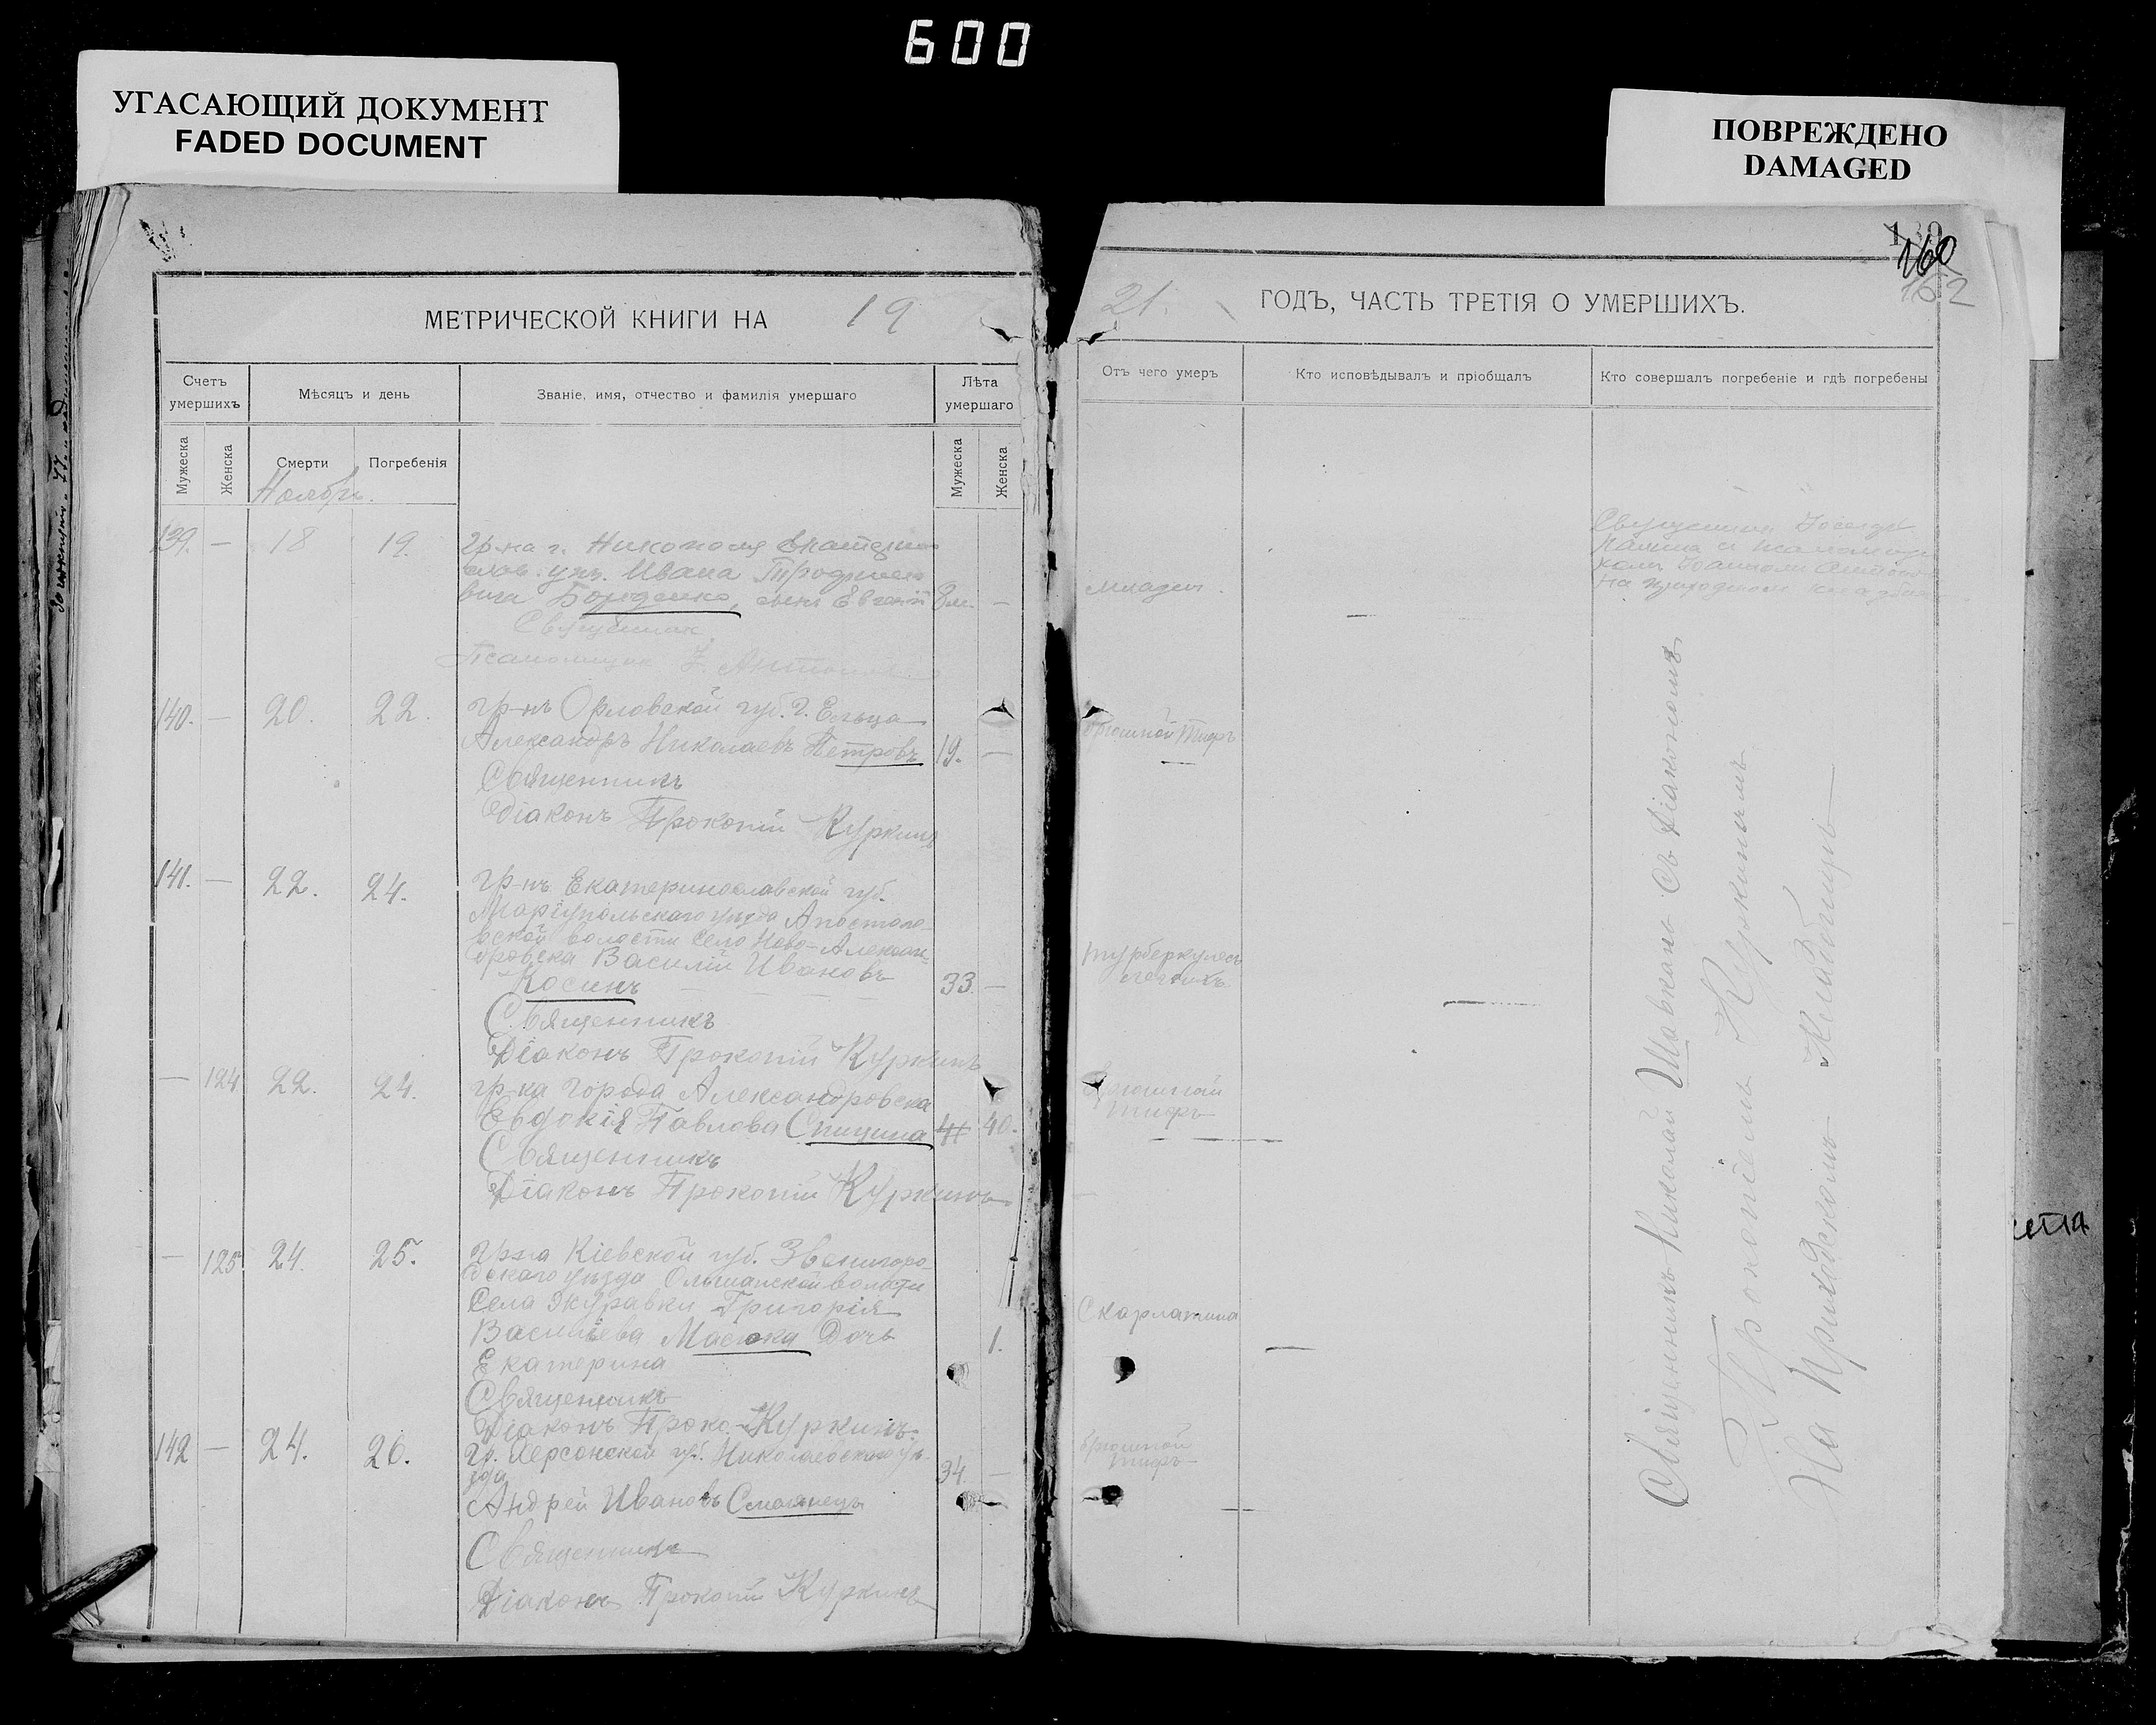 600
УГАСАЮЩИЙ ДОКУМЕНТ
FADED DOCUMENT
ПОВРЕЖДЕНО
DAMAGED
160
162
МЕТРИЧЕСКОЙ КНИГИ НА 19
21. ГОДЪ, ЧАСТЬ ТРЕТІЯ О УМЕРШИХЪ.
Счетъ умершихъ
Мѣсяцъ и день
Званіе, имя, отчество и фамилія умершаго
Лѣта умершаго
Отъ чего умеръ
Кто исповѣдывалъ и пріобщалъ
Кто совершалъ погребеніе и гдѣ погребены
Мужеска
Женска
Смерти
Погребенія
Мужеска
Женска
Ноябрь.
139. — 18 19. гр-на г. Никополя Екатерино
слов. уѣз. Ивана
вича Борденко, сынъ Евгеній 8м. —
Священник
Псаломщик
младен.
140. — 20. 22. гр-нъ Орловской губ. г. Ельца
Александръ Николаевъ Петровъ 19. —
Священникъ
Діаконъ Прокопій Куркинъ
брюшной тифъ
141. — 22. 24. гр-нъ Екатеринославской губ.
Маріупольскаго уѣзда Апостоло-
вской волости село Ново-Алексан-
дровска Василій Ивановъ
Косинъ 33. —
Священникъ
Діаконъ Прокопій Куркинъ
турберкулесъ
легкихъ
— 124 22. 24. гр-ка города Александровска
Евдокія Павлова Спицина 40.
Священникъ
Діаконъ Прокопій Куркинъ
Брюшной
тифъ
— 125 24. 25. гр-на Кіевской губ. Звенигоро-
дскаго уѣзда Ольшанской волости
Села Журавки Григорія
Васильева Масюка Дочь 1.
Екатерина
Священникъ
Діаконъ Проко. Куркинъ
Скарлатина
142 — 24. 26. гр. Херсонской губ. Николаевскаго уѣ-
зда 34. —
Андрей Ивановъ Смолянецъ
Священникъ
Діаконъ Прокопій Куркинъ
брюшной
тифъ
на городском кладби
Священникъ Николай Шавкань Съ Діакономъ
Прокопіемъ Куркинымъ
На Приходскомъ Кладбищѣ